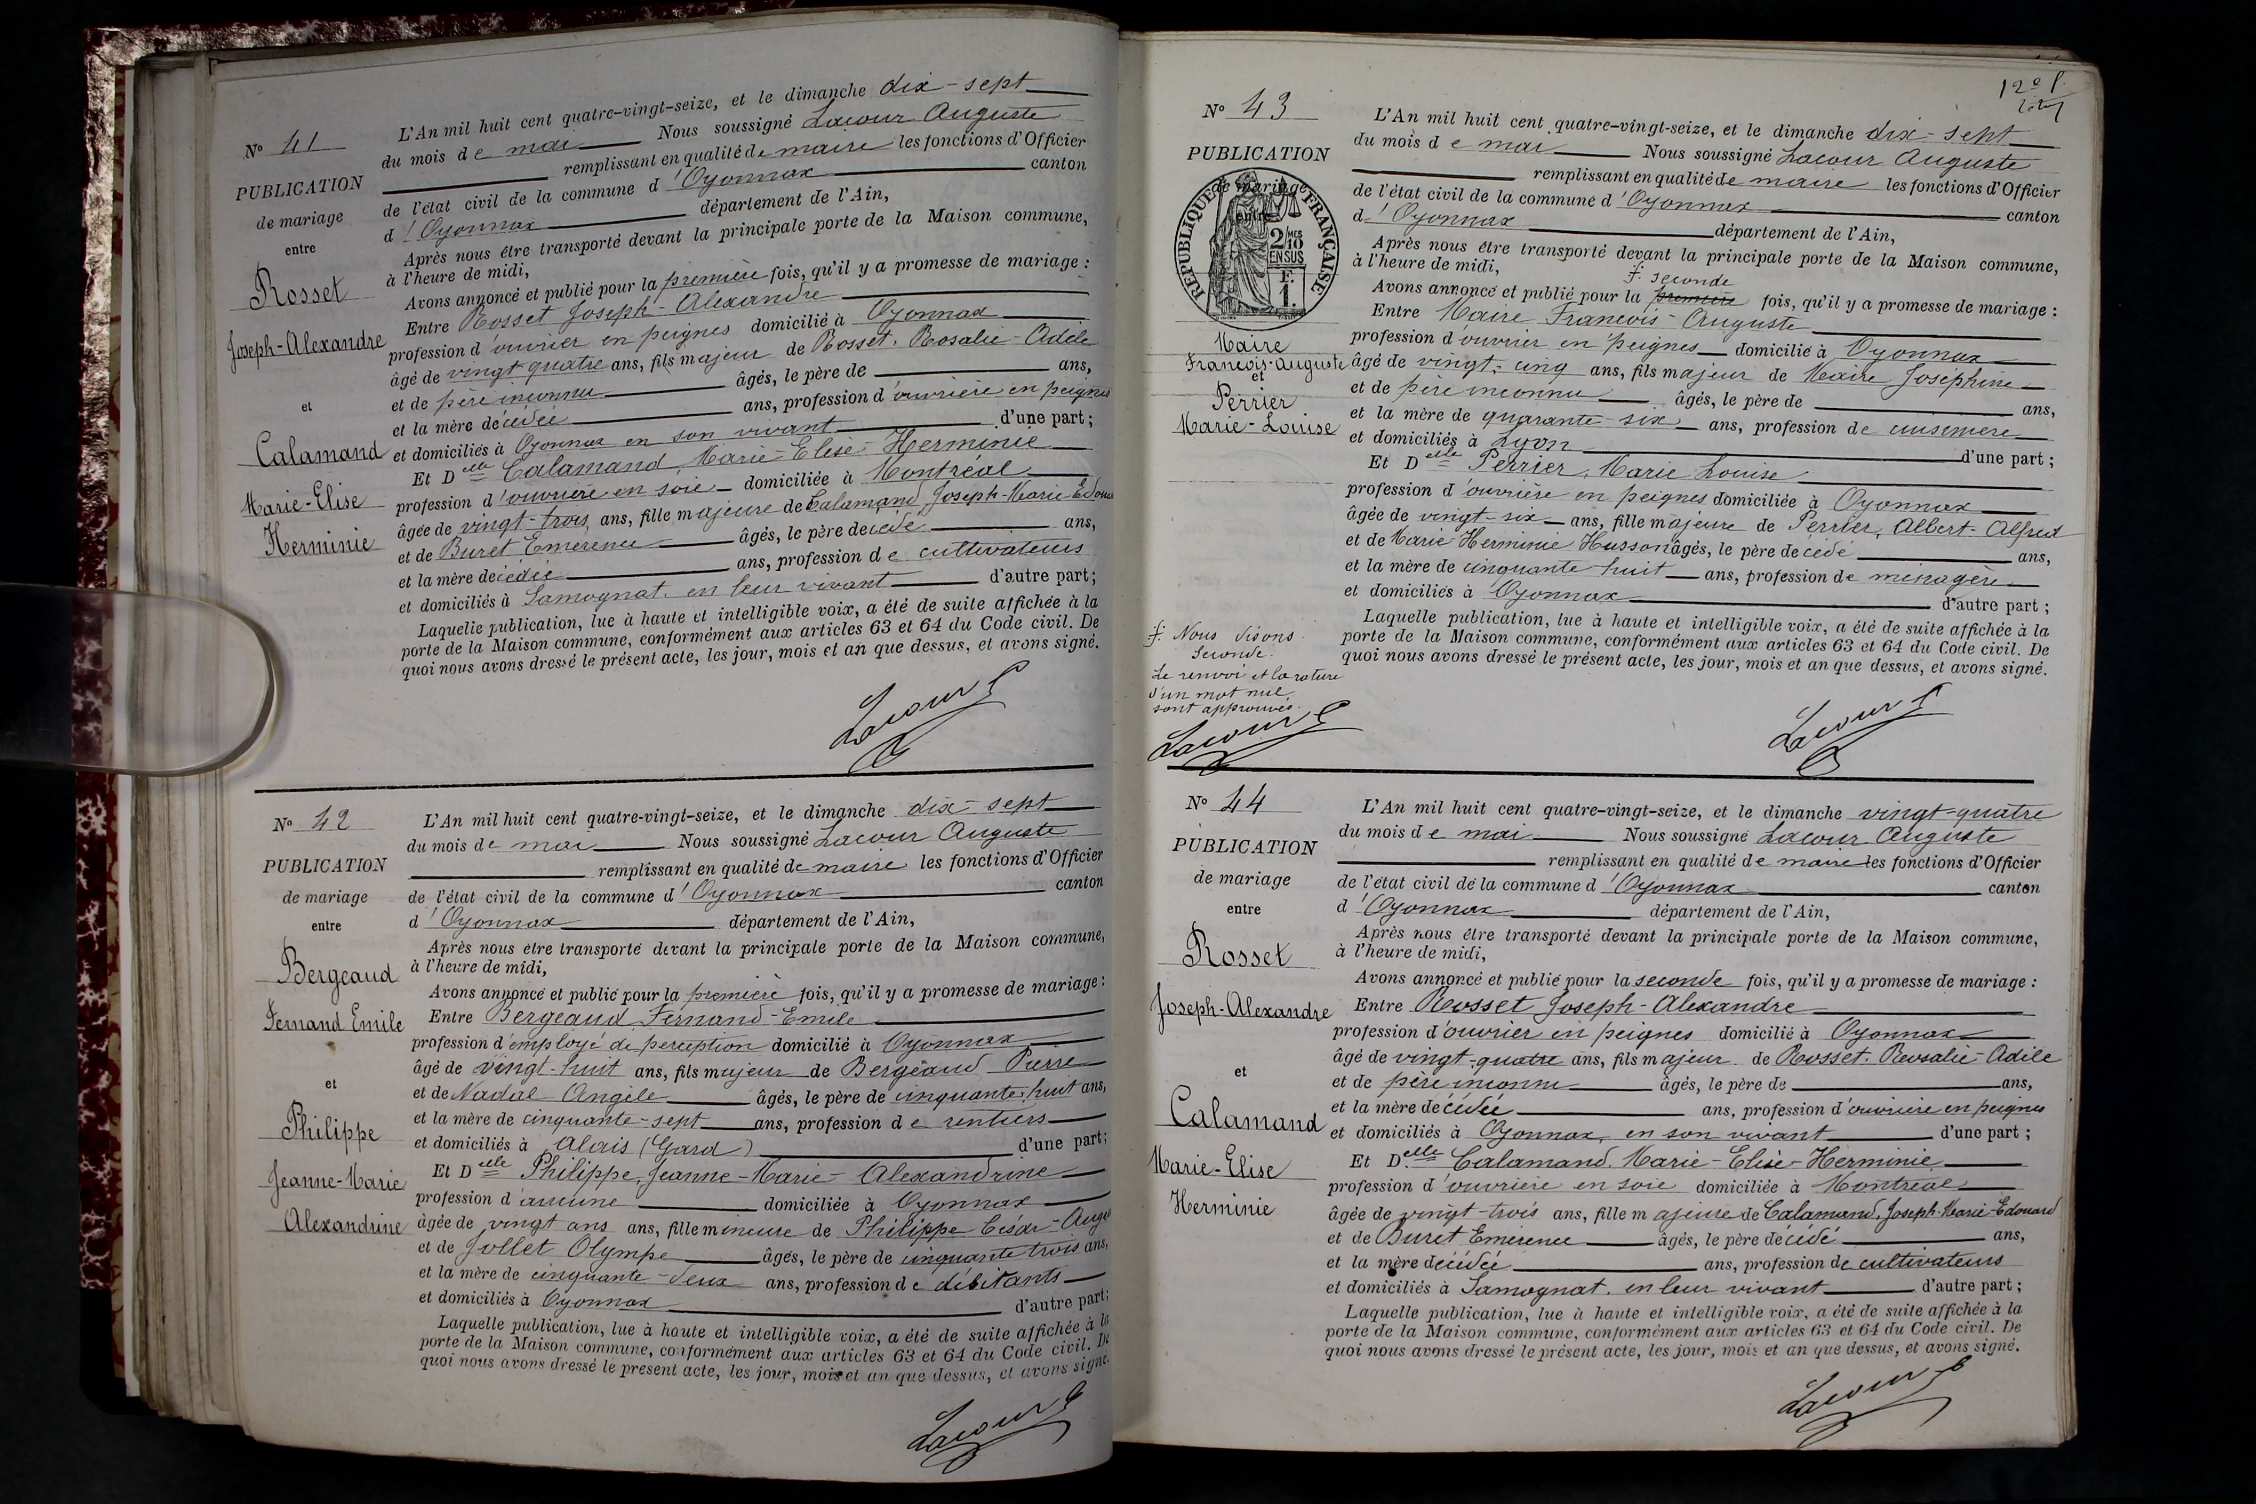 N° 41
PUBLICATION
de mariage
entre
Rosset
Joseph-Alexandre
et
Calamand
Marie-Elise
Herminie
L'An mil huit cent quatre-vingt-seize, et le dimanche dix-sept
du mois de mai Nous soussigné Lacour Auguste
remplissant en qualité de maire les fonctions d'Officier
de l'état civil de la commune d'Oyonnax canton
d'Oyonnax département de l'Ain,
Après nous être transporté devant la principale porte de la Maison commune,
à l'heure de midi,
Avons annoncé et publié pour la première fois, qu'il y a promesse de mariage :
Entre Rosset Joseph-Alexandre
profession d'ouvrier en peignes domicilié à Oyonnax
âgé de vingt quatre ans, fils majeur de Rosset. Rosalie-Adèle
et de père inconnu âgés, le père de ans,
et la mère décédée ans, profession d'ouvrière en peignes
et domiciliés à Oyonnax en son vivant d'une part ;
Et Delle Calamand, Marie-Elise-Herminie
profession d'ouvrière en soie domiciliée à Montréal
âgée de vingt-trois ans, fille majeure de Calamand Joseph-Marie Edouard
et de Buret Emérence âgés, le père décédé ans,
et la mère décédée ans, profession de cultivateurs
et domiciliés à Samognat. en leur vivant d'autre part ;
Laquelle publication, lue à haute et intelligible voix, a été de suite affichée à la
porte de la Maison commune, conformément aux articles 63 et 64 du Code civil. De
quoi nous avons dressé le présent acte, les jour, mois et an que dessus, et avons signé.
Lacour
N° 42
PUBLICATION
de mariage
entre
Bergeaud
Fernand Emile
et
Philippe
Jeanne-Marie
Alexandrine
L'An mil huit cent quatre-vingt-seize, et le dimanche dix-sept
du mois de mai Nous soussigné Lacour Auguste
remplissant en qualité de maire les fonctions d'Officier
de l'état civil de la commune d'Oyonnax canton
d'Oyonnax département de l'Ain,
Après nous être transporté devant la principale porte de la Maison commune,
à l'heure de midi,
Avons annoncé et publié pour la première fois, qu'il y a promesse de mariage :
Entre Bergeaud Fernand-Emile
profession d'employé de perception domicilié à Oyonnax
âgé de vingt-huit ans, fils majeur de Bergeaud Pierre
et de Nadal Angèle âgés, le père de cinquante-huit ans,
et la mère de cinquante-sept ans, profession de rentiers
et domiciliés à Alais (Gard) d'une part ;
Et Delle Philippe, Jeanne-Marie-Alexandrine
profession d'aucune domiciliée à Oyonnax
âgée de vingt ans ans, fille mineure de Philippe César-Auguste
et de Jollet Olympe âgés, le père de cinquante trois ans,
et la mère de cinquante-deux ans, profession de débitants
et domiciliés à Oyonnax d'autre part ;
Laquelle publication, lue à haute et intelligible voix, a été de suite affichée à la
porte de la Maison commune, conformément aux articles 63 et 64 du Code civil. De
quoi nous avons dressé le présent acte, les jour, mois et an que dessus, et avons signé.
Lacour
N° 43
PUBLICATION
de mariage
entre
RÉPUBLIQUE FRANÇAISE
2 MES
10
EN SUS
F.
1.
Maire
François-Auguste
et
Perrier
Marie-Louise
L'An mil huit cent quatre-vingt-seize, et le dimanche dix-sept
du mois de mai Nous soussigné Lacour Auguste
remplissant en qualité de maire les fonctions d'Officier
de l'état civil de la commune d'Oyonnax canton
d'Oyonnax département de l'Ain,
Après nous être transporté devant la principale porte de la Maison commune,
à l'heure de midi,
f. seconde
Avons annoncé et publié pour la première fois, qu'il y a promesse de mariage :
Entre Maire François-Auguste
profession d'ouvrier en peignes domicilié à Oyonnax
âgé de vingt-cinq ans, fils majeur de Maire Joséphine
et de père inconnu âgés, le père de ans,
et la mère de quarante-six ans, profession de cuisinière
et domiciliés à Lyon d'une part ;
Et Delle Perrier, Marie Louise
profession d'ouvrière en peignes domiciliée à Oyonnax
âgée de vingt-six ans, fille majeure de Perrier, Albert-Alfred
et de Marie Herminie Husson âgés, le père décédé ans,
et la mère de cinquante-huit ans, profession de ménagère
et domiciliés à Oyonnax d'autre part ;
Laquelle publication, lue à haute et intelligible voix, a été de suite affichée à la
porte de la Maison commune, conformément aux articles 63 et 64 du Code civil. De
quoi nous avons dressé le présent acte, les jour, mois et an que dessus, et avons signé.
f. Nous disons
seconde.
Le renvoi et la rature
d'un mot nul
sont approuvés.
Lacour
Lacour
N° 44
PUBLICATION
de mariage
entre
Rosset
Joseph-Alexandre
et
Calamand
Marie-Elise
Herminie
L'An mil huit cent quatre-vingt-seize, et le dimanche vingt-quatre
du mois de mai Nous soussigné Lacour Auguste
remplissant en qualité de maire les fonctions d'Officier
de l'état civil de la commune d'Oyonnax canton
d'Oyonnax département de l'Ain,
Après nous être transporté devant la principale porte de la Maison commune,
à l'heure de midi,
Avons annoncé et publié pour la seconde fois, qu'il y a promesse de mariage :
Entre Rosset Joseph-Alexandre
profession d'ouvrier en peignes domicilié à Oyonnax
âgé de vingt-quatre ans, fils majeur de Rosset. Rosalie-Adèle
et de père inconnu âgés, le père de ans,
et la mère décédée ans, profession d'ouvrière en peignes
et domiciliés à Oyonnax, en son vivant d'une part ;
Et Delle Calamand, Marie-Elise-Herminie
profession d'ouvrière en soie domiciliée à Montréal
âgée de vingt-trois ans, fille majeure de Calamand, Joseph-Marie-Edouard
et de Buret Emérence âgés, le père décédé ans,
et la mère décédée ans, profession de cultivateurs
et domiciliés à Samognat. en leur vivant d'autre part ;
Laquelle publication, lue à haute et intelligible voix, a été de suite affichée à la
porte de la Maison commune, conformément aux articles 63 et 64 du Code civil. De
quoi nous avons dressé le présent acte, les jour, mois et an que dessus, et avons signé.
Lacour